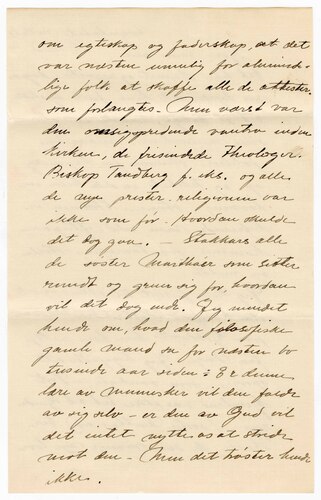 om egteskap og faderskap, at det
var næsten umulig for almind-
lige folk at skaffe alle de attester
som forlangtes. Men værst var
den omsiggribende vantro inden
kirken, de frisindede theologer.
Biskop Tandberg f. eks. og alle
de nye prester, religionen var
ikke som før. Hvordan skulde
det dog gaa. — Stakkars alle
de søster Marthaer som sitter
rundt og gruer sig for hvordan
vil det dog ende. Jeg mindet
hende om, hvad den filosofiske
gamle mand sa for næsten to
tusende aar siden: Er denne
lære av mennesker vil den falde
av sig selv – er den av Gud vil
det intet nytte os at stride
mot den – Men det trøster hende
ikke.